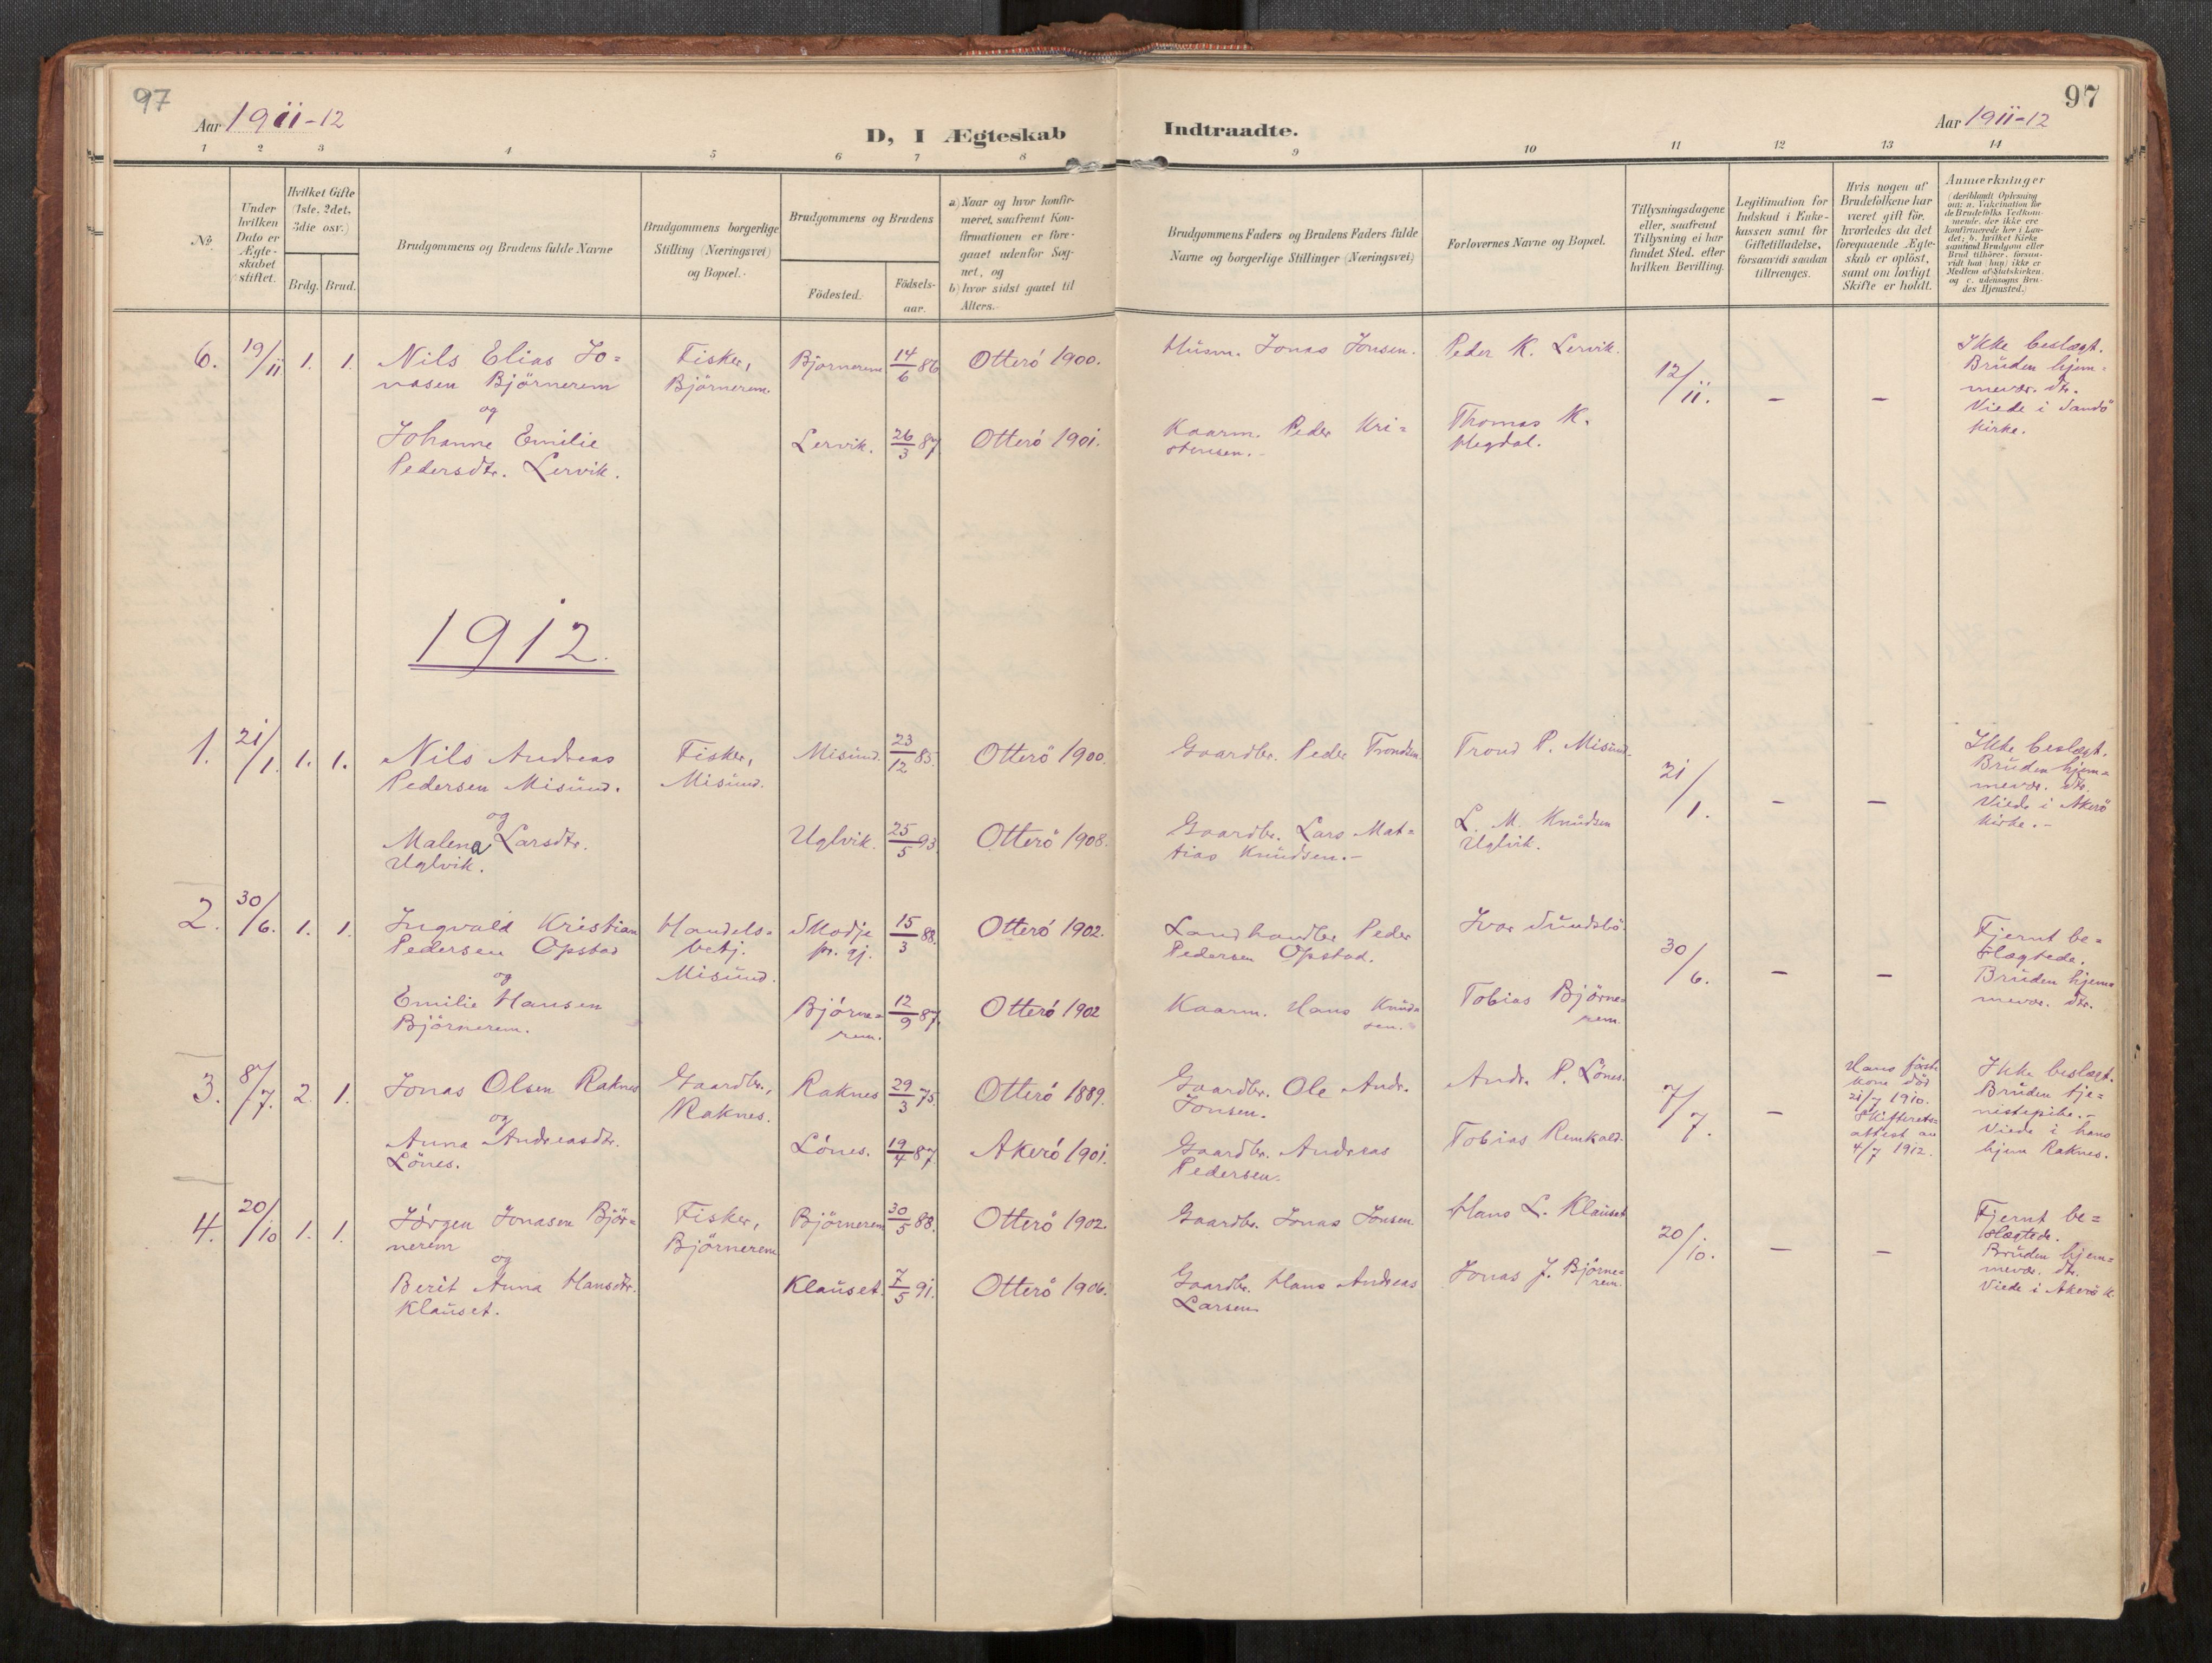 97
Aar 1911-12
D, I Ægteskab
Indtraadte.
Aar 1911-12
97
1 2 3 4 5 6 7 8 9 10 11 12 13 14
No.
Under
hvilken
Dato er
Ægte-
skabet
stiftet.
Hvilket Gifte
(1ste, 2det,
3die osv.)
Brdg. Brud.
Brudgommens og Brudens fulde Navne
Brudgommens borgerlige
Stilling (Næringsvei)
og Bopæl.
Brudgommens og Brudens
Födested.
Födsels-
aar.
a) Naar og hvor konfir-
meret, saafremt Kon-
firmationen er fore-
gaaet udenfor Sog-
net, og
b) hvor sidst gaaet til
Alters.
Brudgommens Faders og Brudens Faders fulde
Navne og borgerlige Stillinger (Næringsvei)
Forlovernes Navne og Bopæl.
Tillysningsdagene
eller, saafremt
Tillysning ei har
fundet Sted, efter
hvilken Bevilling.
Legitimation for
Indskud i Enke-
kassen samt for
Giftetilladelse,
forsaavidt saadan
tiltrænges.
Hvis nogen af
Brudefolkene har
været gift för,
hvorledes da det
foregaaende Ægte-
skab er oplöst,
samt om lovligt
Skifte er holdt.
Anmerkninger
(deriblandt Oplysning
om: a. Vakcination for
de Brudefolks Vedkom-
mende, der ikke ere
konfirmerede her i Lan-
det; b. hvilket Kirke-
samfund Brudgom eller
Brud tilhörer, forsaa-
vidt han (hun) ikke er
Medlem af Statskirken,
og c. udensogns Bru-
des Hjemsted.)
6. 19/11 1. 1. Nils Elias Jo=
nasen Björnerem
og
Johanne Emilie
Pedersdtr. Lervik.
Fisker,
Björnerem.
Bjørnerem 14/6 86 Otterö 1900.
Lervik. 26/3 87 Otterö 1901.
Husm. Jonas Jonsen.
Kaarm. Peder Kri=
stensen.
Peder K. Lervik.
Thomas K.
Hegdal.
12/11.
-
-
Ikke beslægt.
Bruden hjem=
mevær. dtr.
Viede i Sandö
Kirke.
1912.
1. 21/1. 1. 1. Nils Andreas
Pedersen Misund.
og
Malena Larsdtr.
Uglvik.
Fisker,
Misund.
Misund. 23/12 85. Otterö 1900.
Uglvik. 25/5 93. Otterö 1908.
Gaardbr. Peder Trondsen
Gaardbr. Lars Mat=
tias Knudsen.-
Trond P. Misund.
L. M. Knudsen
Uglvik.
21/1.
-
-
Ikke beslægt.
Bruden hjem=
mevær. dtr.
Viede i Akerö
Kirke.-
2. 30/6. 1. 1. Ingvald Kristian
Pedersen Opstad
og
Emilie Hansen
Björnerem.
Handels=
betj.
Misund.
Skodje
pr. gj.
15/3 88. Otterö 1902.
Björne=
rem.
12/9 87. Otterö 1902
Landhandler Peder
Pedersen Opstad.
Kaarm. Hans Knud=
sen.
Ivar Sundsbö.
Tobias Björne=
rem.
30/6.
-
-
Fjernt be=
slægtede.
Bruden hjem=
mevær. dtr.
3. 8/7. 2. 1. Jonas Olsen Raknes
og
Anna Andreasdtr.
Lönes.
Gaardbr.,
Raknes.
Raknes 29/3 75. Otterö 1889.
Lönes. 19/4 87. Akerö 1901.
Gaardbr. Ole Andr.
Jonsen.
Gaardbr. Andreas
Pedersen.
Andr. P. Lönes.
Tobias Remkald.
7/7.
-
Hans första
kone död
21/7 1910.
Skifterets=
attest av
4/7 1912.
Ikke beslægt.
Bruden tje=
nistepike.-
Viede i hans
hjem Raknes.
4. 20/10 1. 1. Jörgen Jonasen Björ=
nerem
og
Berit Anna Hansdtr.
Klauset.
Fisker,
Björnerem
Björnerem 30/5 88. Otterö 1902.
Klauset. 7/5 91. Otterö 1906.
Gaardbr. Jonas Jonsen
Gaardbr. Hans Andreas
Larsen
Hans L. Klauset
Jonas J. Björne=
rem.
20/10.
-
-
Fjernt be=
slægtede.
Bruden hjem=
mevær. dtr.
Viede i Akerö K.